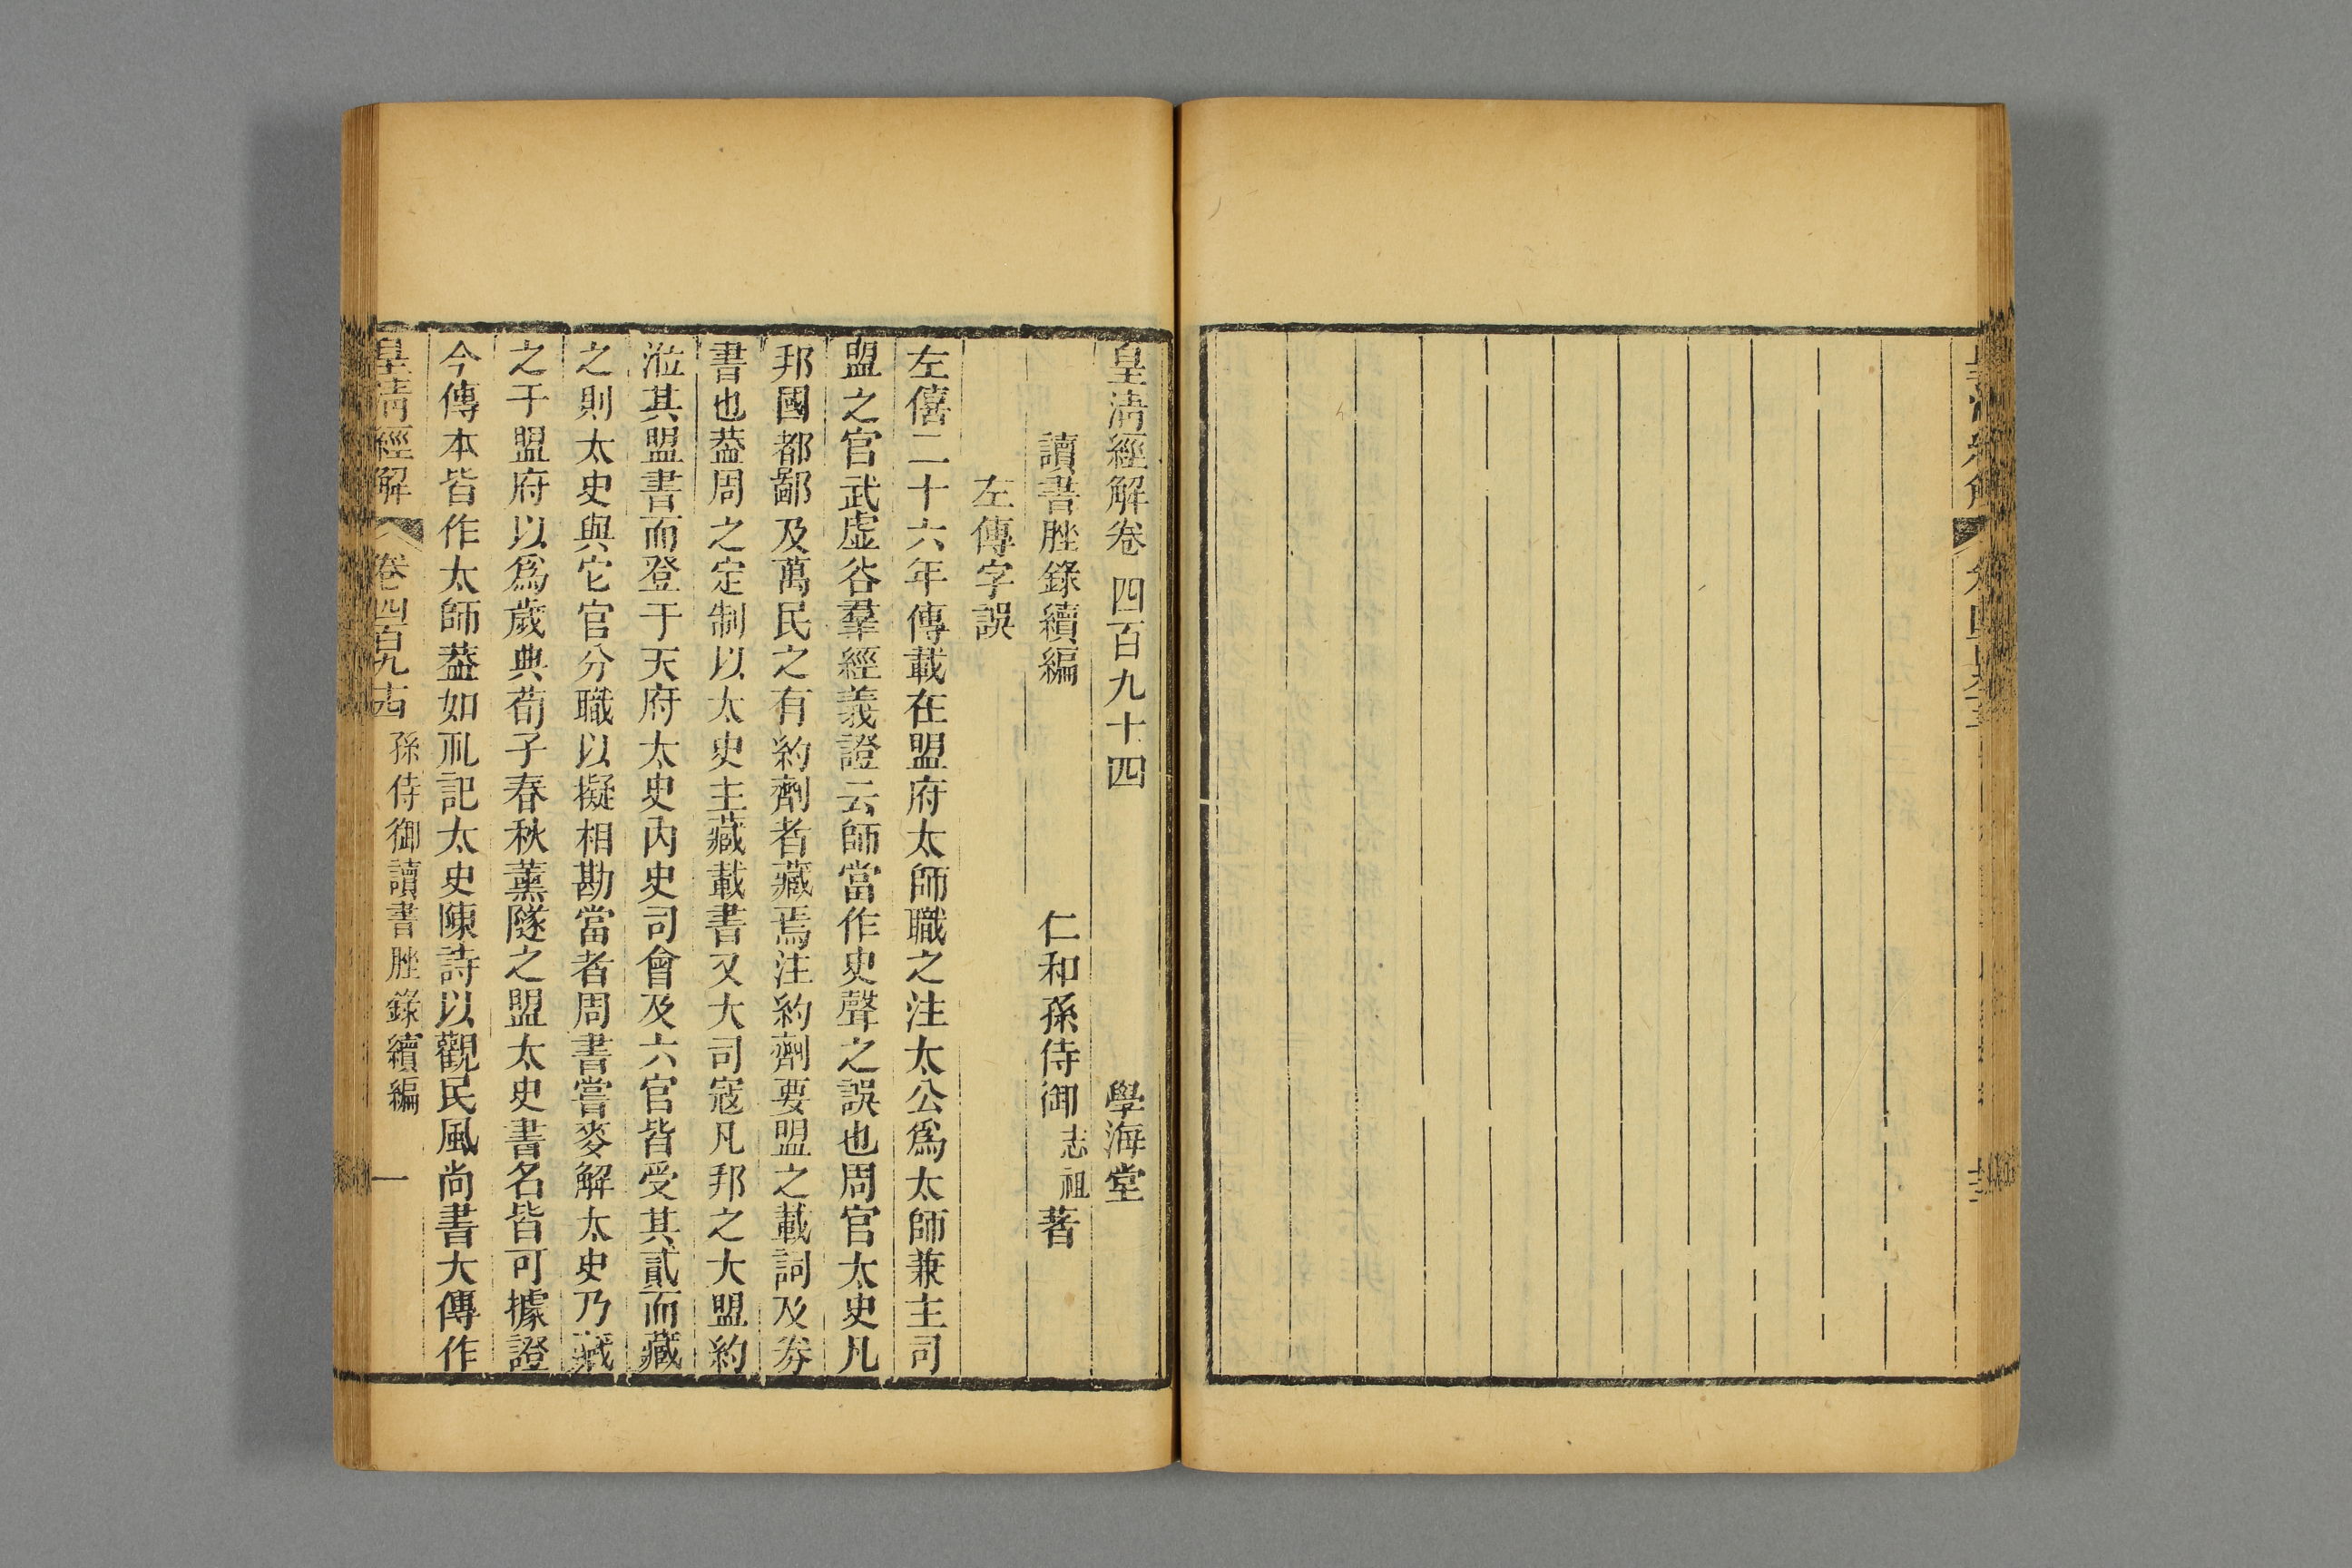 皇清經解卷四百九十四 學海堂
讀書脞錄續編 仁和孫侍御志祖著
左傳字誤
左僖二十六年傳載在盟府太師職之注太公爲太師兼主司
盟之官武虛谷羣經義證云師當作史聲之誤也周官太史凡
邦國都鄙及萬民之有約劑者藏焉注約劑要盟之載詞及券
書也葢周之定制以太史主藏載書又大司寇凡邦之大盟約
涖其盟書而登于天府太史內史司會及六官皆受其貳而藏
之則太史與它官分職以擬相勘當者周書嘗麥解太史乃藏
之于盟府以爲歲典荀子春秋薰隧之盟太史書名皆可據證
今傳本皆作太師葢如礼記太史陳詩以觀民風尚書大傳作
皇清經解 卷四百九十四 孫侍御讀書脞錄續編 一